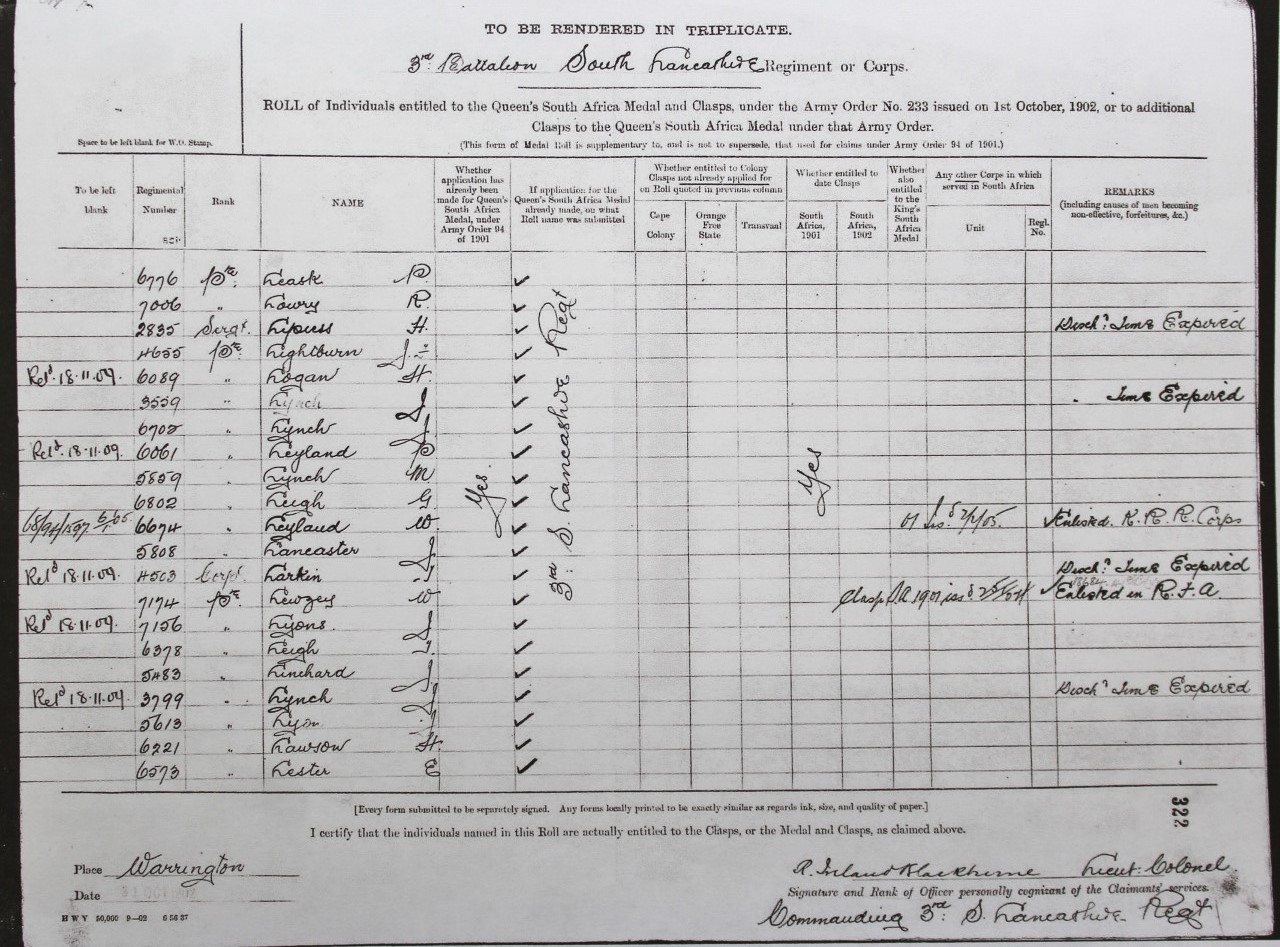 TO BE RENDERED IN TRIPLICATE.
3rd Battalion South Lancashire Regiment or Corps.
ROLL of Individuals entitled to the Queen's South Africa Medal and Clasps, under the Army Order No. 233 issued on 1st October, 1902, or to additional
Clasps to the Queen's South Africa Medal under that Army Order.
(This form of Medal Roll is supplementary to, and is not to supersede, that used for claims under Army Order 94 of 1901.)
Space to be left blank for W.O. Stamp.
To be left blank
Regimental Number
Rank
NAME
Whether application has already been made for Queen's South Africa Medal, under Army Order 94 of 1901
If application for the Queen's South Africa Medal already made, on what Roll name was submitted
Whether entitled to Colony Clasps not already applied for on Roll quoted in previous column
Cape Colony
Orange Free State
Transvaal
Whether entitled to date Clasps
South Africa, 1901
South Africa, 1902
Whether also entitled to the King's South Africa Medal
Any other Corps in which served in South Africa
Unit
Regl. No.
REMARKS
(including causes of men becoming non-effective, forfeitures, &c.)
6776 Pte. Leask P.
7006 " Lowry R.
2835 Sergt. Lipuss H. Disch'd Time Expired
4655 Pte. Lightburn
Ret'd 18.11.09. 6089 " Logan H.
3559 " Lynch J Time Expired
6702 " Lynch J
Ret'd 18.11.09. 6061 " Leyland P
5859 " Lynch M
6802 " Leigh G.
6674 " Leyland W. Enlisted. K. R. R. Corps
5808 " Lancaster J
Ret'd 18.11.09. 4503 Corpl. Larkin J Disch'd Time Expired
7174 Pte. Lewzey W Clasp S.A 1901 iss'd Enlisted in R.F.A.
Ret'd 18.11.09. 7156 " Lyons. J
6378 " Leigh T.
5483 " Linchard J
Ret'd 18.11.09. 3799 " Lynch J Disch'd Time Expired
5613 " Lyon J
6221 " Lawson H.
6573 " Lester E
Yes.
3rd S. Lancashire Regt
Yes
[Every form submitted to be separately signed. Any forms locally printed to be exactly similar as regards ink, size, and quality of paper.]
I certify that the individuals named in this Roll are actually entitled to the Clasps, or the Medal and Clasps, as claimed above.
322
Place Warrington
R. Ireland Blackburne Lieut. Colonel.
Date
Signature and Rank of Officer personally cognizant of the Claimants' services.
H W V 50,000 9—02 6 56 37
Commanding 3rd S. Lancashire Regt